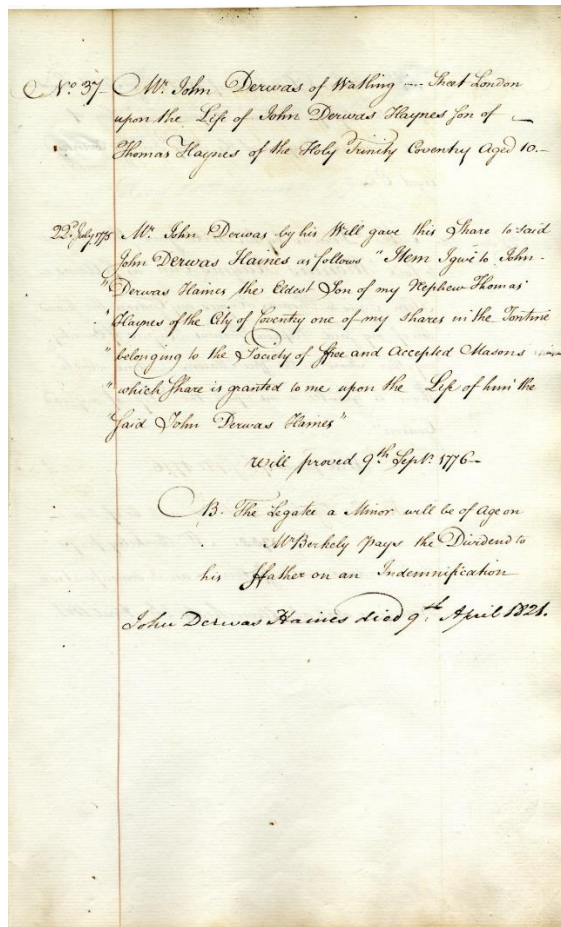 No. 37 Mr. John Derwas of Watling --- Street London
upon the Life of John Derwas Haynes Son of
Thomas Haynes of the Holy Trinity Coventry Aged 10.—
22d. July 1775 Mr. John Derwas by his Will gave this Share to said
John Derwas Haines as follows "Item I give to John-
"Derwas Haines the Eldest Son of my Nephew Thomas
"Haynes of the City of Coventry one of my shares in the Tontine
"belonging to the Society of ffree and Accepted Masons
"which Share is granted to me upon the Life of him the
"Said John Derwas Haines"
Will proved 9th. Sepr. 1776—
NB. The Legatee a Minor will be of Age on
Mr Berkely pays the Dividend to
his ffather on an Indemnification
John Derwas Haines died 9th. April 1821.